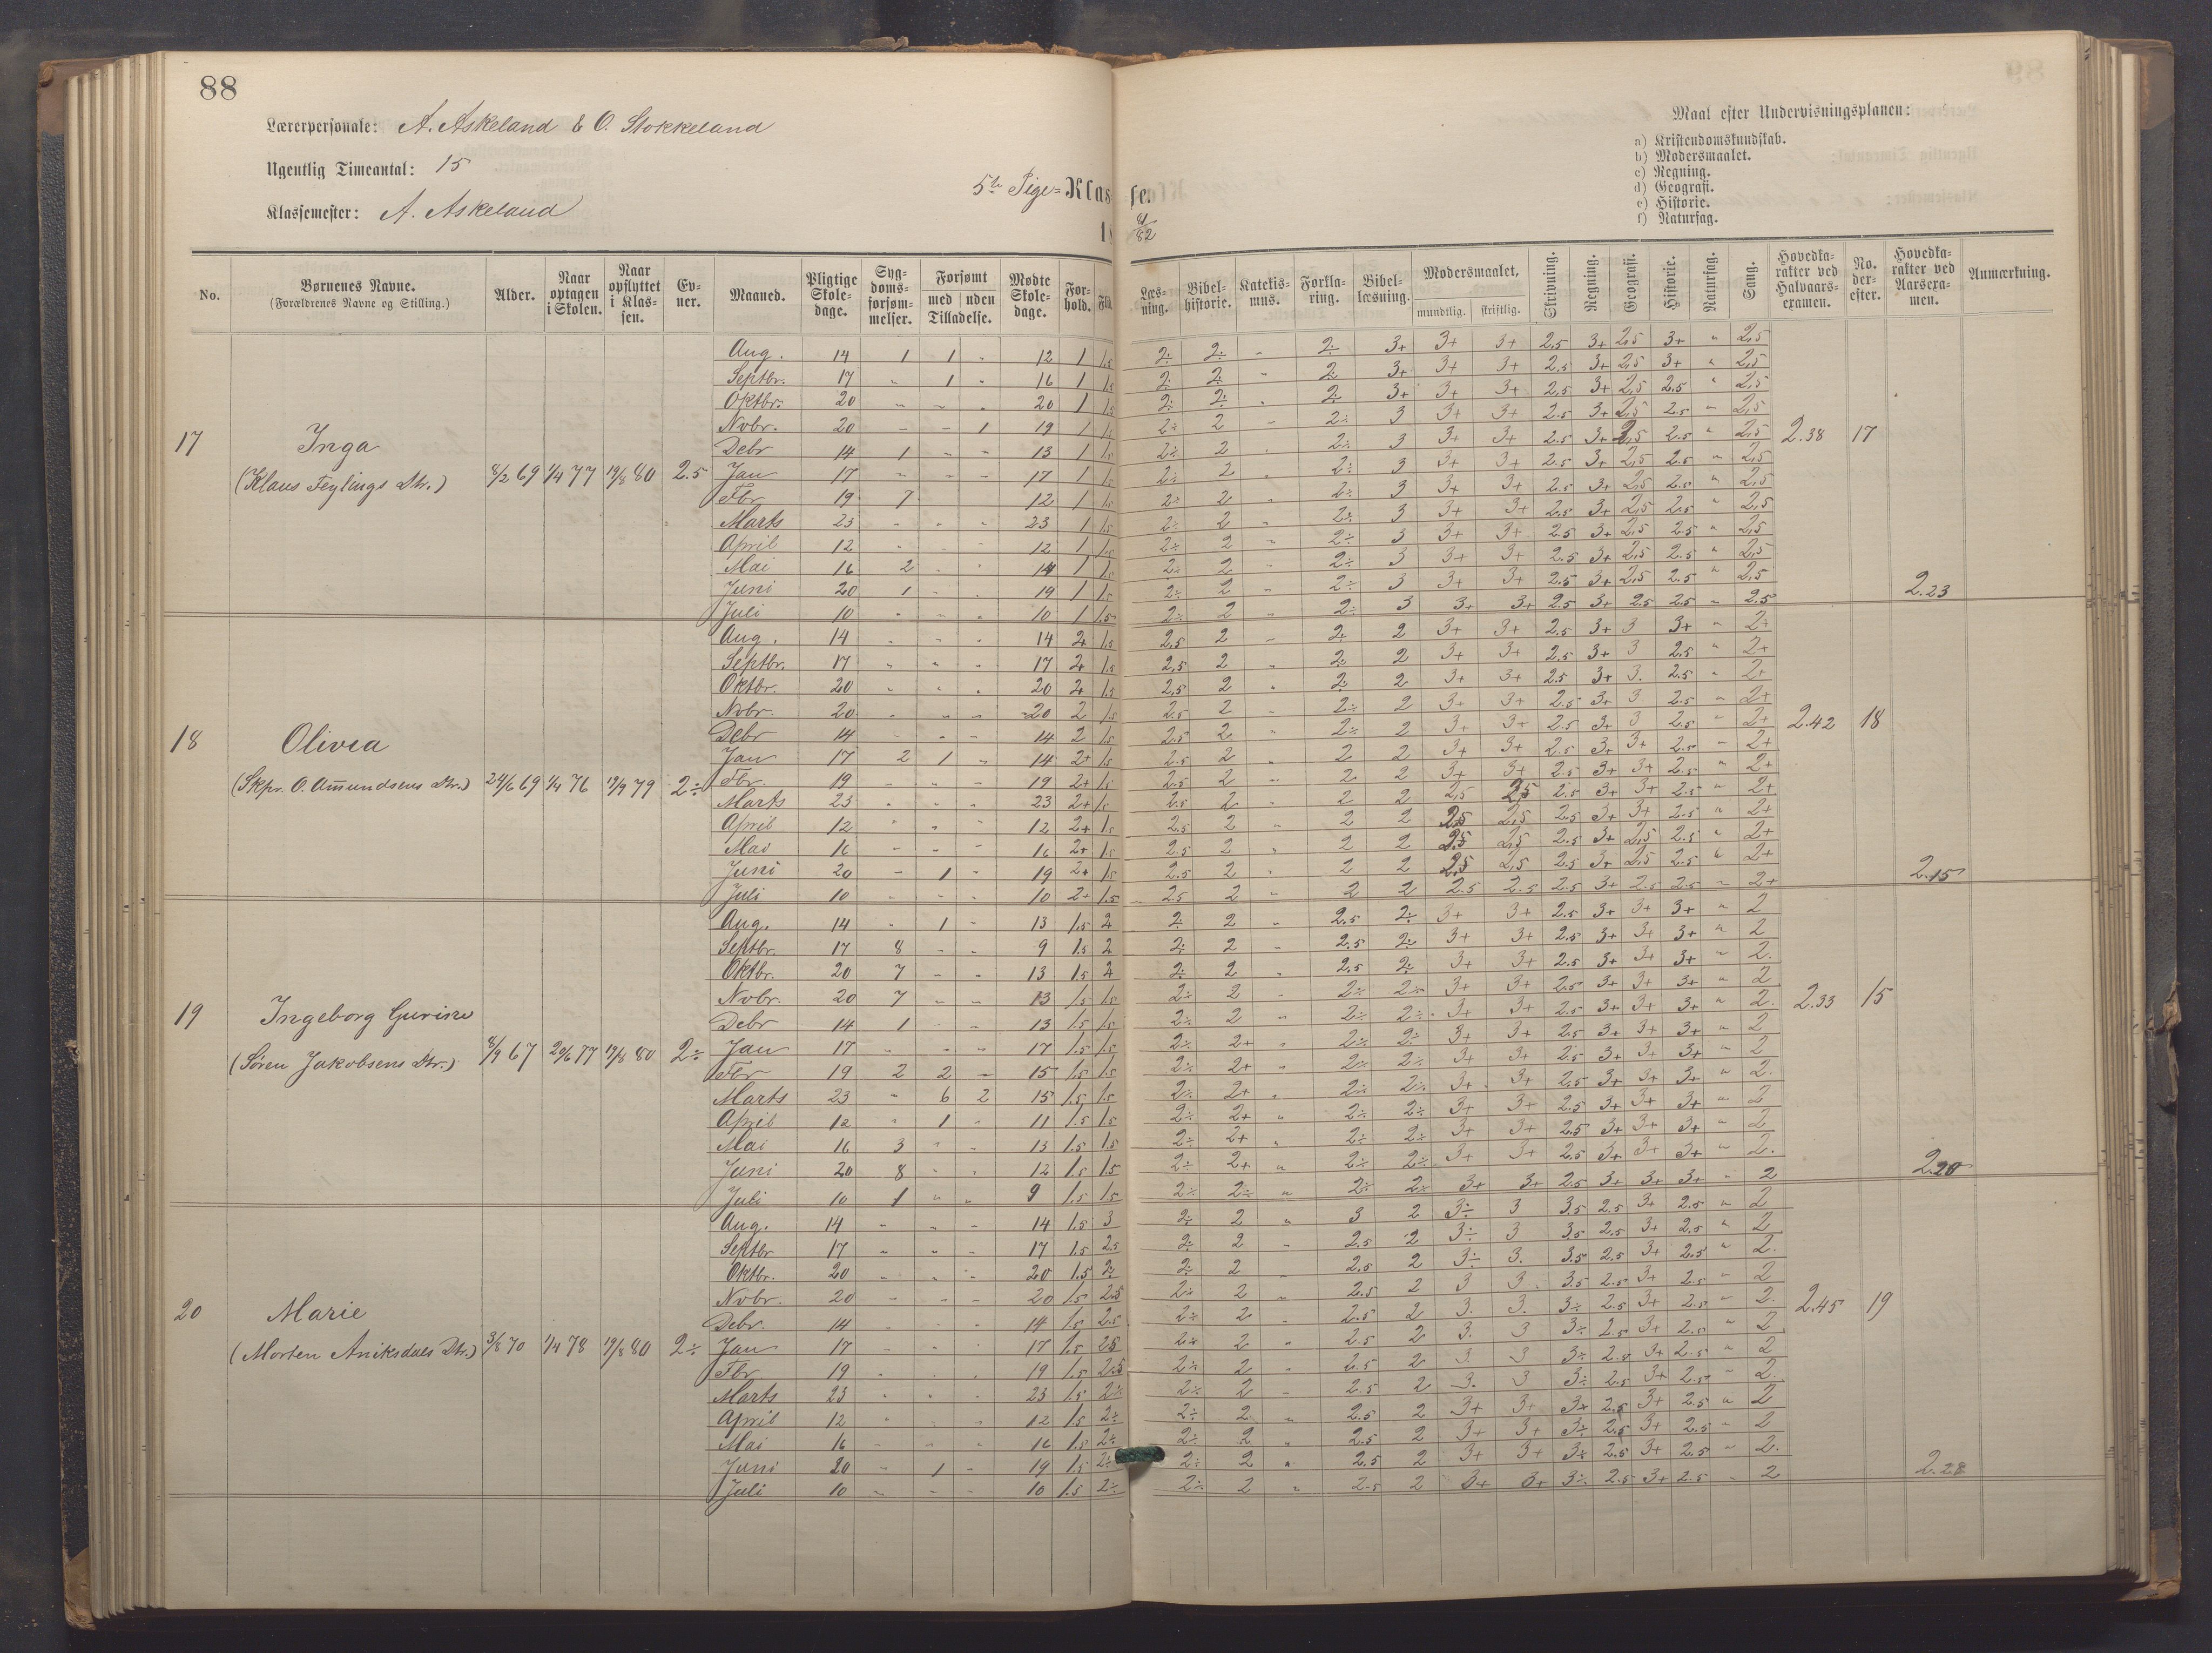 88
Lærerpersonale: A. Askeland & O. Stokkeland
Ugentlig Timeantal: 15
Klassemester: A. Askeland
5te Pige= Klasse.
18 81/82
Maal efter Undervisningsplanen:
a) Kristendomskundskab.
b) Modersmaalet.
c) Regning.
d) Geografi.
e) Historie.
f) Naturfag.
No. Børnenes Navne. (Forældrenes Navne og Stilling.) Alder. Naar optagen i Skolen. Naar opflyttet i Klassen. Evner. Maaned. Pligtige Skoledage. Sygdomsforsømmelser. Forsømt med uden Tilladelse. Mødte Skoledage. Forhold. Flid. Læsning. Bibelhistorie. Katekismus. Forklaring. Bibellæsning. Modersmaalet, mundtlig. skriftlig. Skrivning. Regning. Geografi. Historie. Naturfag. Sang. Hovedkarakter ved Halvaarsexamen. No. derefter. Hovedkarakter ved Aarsexamen. Anmærkning.
17 Inga
(Klaus Feylings Dtr.) 8/2 69 1/4 77 19/8 80 2.5
Aug. 14 1 1 " 12 1 1.5 2÷ 2÷ " 2÷ 3+ 3+ 3+ 2.5 3+ 2,5 3+ " 2,5
Septbr. 17 " 1 " 16 1 1.5 2÷ 2÷ " 2÷ 3+ 3+ 3+ 2.5 3+ 2,5 3+ " 2,5
Oktbr. 20 " " " 20 1 1.5 2÷ 2÷ " 2÷ 3+ 3+ 3+ 2.5 3+ 2,5 2.5 " 2,5
Novbr. 20 " " 1 19 1 1.5 2÷ 2 " 2÷ 3 3+ 3+ 2.5 3+ 2,5 2.5 " 2,5
Debr 14 1 " " 13 1 1.5 2÷ 2 " 2÷ 3 3+ 3+ 2.5 3+ 2,5 2.5 " 2,5 2.38 17
Jan 17 " " " 17 1 1.5 2÷ 2 " 2÷ 3 3+ 3+ 2.5 3+ 2,5 2.5 " 2,5
Fbr 19 7 12 1 1.5 2÷ 2 " 2÷ 3 3+ 3+ 2.5 3+ 2,5 2.5 " 2,5
Marts 23 " " " 23 1 1.5 2÷ 2 " 2÷ 3 3+ 3+ 2.5 3+ 2,5 2.5 " 2,5
April 12 " " " 12 1 1.5 2÷ 2 " 2÷ 3 3+ 3+ 2.5 3+ 2,5 2.5 " 2,5
Mai 16 2 " " 14 1 1.5 2÷ 2 " 2÷ 3 3+ 3+ 2.5 3+ 2,5 2.5 " 2,5
Juni 20 1 " " 19 1 1.5 2÷ 2 " 2÷ 3 3+ 3+ 2.5 3+ 2,5 2.5 " 2,5 2.23
Juli 10 " " " 10 1 1.5 2÷ 2 " 2÷ 3 3+ 3+ 2.5 3+ 2.5 2.5 " 2.5
18 Olivia
(Skpr. O. Amundsens Dtr.) 24/6 69 1/4 76 79 2÷
Aug. 14 " " " 14 2+ 1.5 2.5 2 " 2÷ 2 3+ 3+ 2.5 3+ 3 3+ " 2+
Septbr. 17 " " " 17 2+ 1.5 2.5 2 " 2÷ 2 3+ 3+ 2.5 3+ 3 2.5 " 2+
Oktbr. 20 " " " 20 2+ 1.5 2.5 2 " 2÷ 2 3+ 3+ 2.5 3+ 3. 2.5 " 2+
Nvbr. 20 " " " 20 2 1.5 2.5 2 " 2÷ 2 3+ 3+ 2.5 3+ 3 2.5 " 2+
Debr 14 " " " 14 2 1.5 2.5 2 " 2÷ 2 3+ 3+ 2.5 3+ 3 2.5 " 2+ 2.42 18
Jan 17 2 1 " 14 2+ 1.5 2.5 2 " 2 2 3+ 3+ 2.5 3+ 3+ 2.5 " 2+
Fbr. 19 " " " 19 2+ 1.5 2.5 2 " 2 2 3+ 3+ 2.5 3+ 3+ 2.5 " 2+
Marts 23 " " " 23 2+ 1.5 2.5 2 " 2 2 2,5 2,5 2.5 3+ 3+ 2.5 " 2+
April 12 " " " 12 2+ 1.5 2.5 2 " 2 2 2,5 2,5 2.5 3+ 3+ 2.5 " 2+
Mai 16 " " " 16 2+ 1.5 2.5 2 " 2 2 2,5 2,5 2.5 3+ 2,5 2.5 " 2+
Juni 20 " 1 " 19 2+ 1.5 2.5 2 " 2 2 2,5 2,5 2.5 3+ 2,5 2.5 " 2+ 2.15
Juli 10 " " " 10 2+ 1.5 2.5 2 " 2 2 2.5 2.5 2.5 3+ 2.5 2.5 " 2+
19 Ingeborg Gurine
(Søren Jakobsens Dtr.) 8/9 67 20/6 77 19/8 80 2÷
Aug. 14 " 1 " 13 1.5 2 2÷ 2 " 2.5 2÷ 3+ 3+ 2.5 3+ 3+ 3+ " 2
Septbr. 17 8 " " 9 1.5 2 2÷ 2 " 2.5 2÷ 3+ 3+ 2.5 3+ 3+ 3+ " 2
Oktbr. 20 7 " " 13 1.5 2 2÷ 2 " 2.5 2÷ 3+ 3+ 2.5 3+ 3+ 3+ " 2.
Nvbr. 20 7 " " 13 1.5 1.5 2÷ 2 " 2÷ 2÷ 3+ 3+ 2.5 3+ 3+ 3+ " 2
Debr 14 1 " " 13 1.5 1.5 2÷ 2 " 2÷ 2÷ 3+ 3+ 2.5 3+ 3+ 3+ " 2. 2.33 15
Jan 17 " " " 17 1.5 1.5 2÷ 2+ " 2÷ 2÷ 3+ 3+ 2.5 3+ 3+ 3+ " 2
Fbr 19 2 2 " 15 1.5 1.5 2÷ 2+ " 2÷ 2÷ 3+ 3+ 2.5 3+ 3+ 3+ " 2
Marts 23 " 6 2 15 1.5 1.5 2÷ 2+ " 2÷ 2÷ 3+ 3+ 2.5 3+ 3+ 3+ " 2.
April 12 " 1 " 11 1.5 1.5 2÷ 2+ " 2÷ 2÷ 3+ 3+ 2.5 3+ 3+ 3+ " 2
Mai 16 3 " " 13 1.5 1.5 2÷ 2+ " 2÷ 2÷ 3+ 3+ 2.5 3+ 3+ 3+ " 2
Juni 20 8 " " 12 1.5 1.5 2÷ 2+ " 2÷ 2÷ 3+ 3+ 2.5 3+ 3+ 3+ " 2. 2.20
Juli 10 1 " " 9 1.5 1.5 2÷ 2÷ " 2÷ 2÷ 3+ 3+ 2.5 3+ 3+ 3+ " 2
20 Marie
(Morten Aniksdals Dtr.) 3/8 70 1/4 78 19/8 80 2÷
Aug. 14 " " " 14 1.5 3 2÷ 2 " 3 2 3÷ 3 3.5 2.5 3+ 2.5 " 2
Septbr 17 " " " 17 1.5 2.5 2÷ 2 " 2.5 2 3÷ 3 3.5 2.5 3+ 2.5 " 2
Oktbr. 20 " " " 20 1.5 2÷ 2÷ 2 " 2.5 2 3÷ 3. 3.5 2.5 3+ 2.5 " 2.
Nvbr. 20 " " " 20 1.5 2.5 2÷ 2 " 2.5 2 3 3 3.5 2.5 3+ 2.5 " 2
Debr. 14 " " " 14 1.5 2.5 2÷ 2 " 2.5 2 3. 3. 3÷ 2.5 3+ 2.5 " 2. 2.45 19
Jan 17 " " " 17 1.5 2.5 2÷ 2 " 2.5 2 3. 3 3÷ 2.5 3+ 2.5 " 2
Fbr 19 " " " 19 1.5 2.5 2÷ 2 " 2.5 2 3. 3 3÷ 2.5 3+ 2.5 " 2
Marts 23 " " " 23 1.5 2÷ 2÷ 2 " 2.5 2 3. 3 3÷ 2.5 3+ 2.5 " 2.
April 12 " " " 12 1.5 2÷ 2÷ 2 " 2.5 2 3+ 3+ 3÷ 2.5 3+ 2.5 " 2
Mai 16 " " " 16 1.5 2÷ 2÷ 2 " 2.5 2 3+ 3+ 3÷ 2.5 3+ 2.5 " 2
Juni 20 " 1 " 19 1.5 2÷ 2÷ 2 " 2.5 2 3+ 3+ 3÷ 2.5 3+ 2.5 " 2. 2.28
Juli 10 " " " 10 1.5 2÷ 2÷ 2 " 2.5 2 3+ 3+ 3÷ 2.5 3+ 2.5 " 2